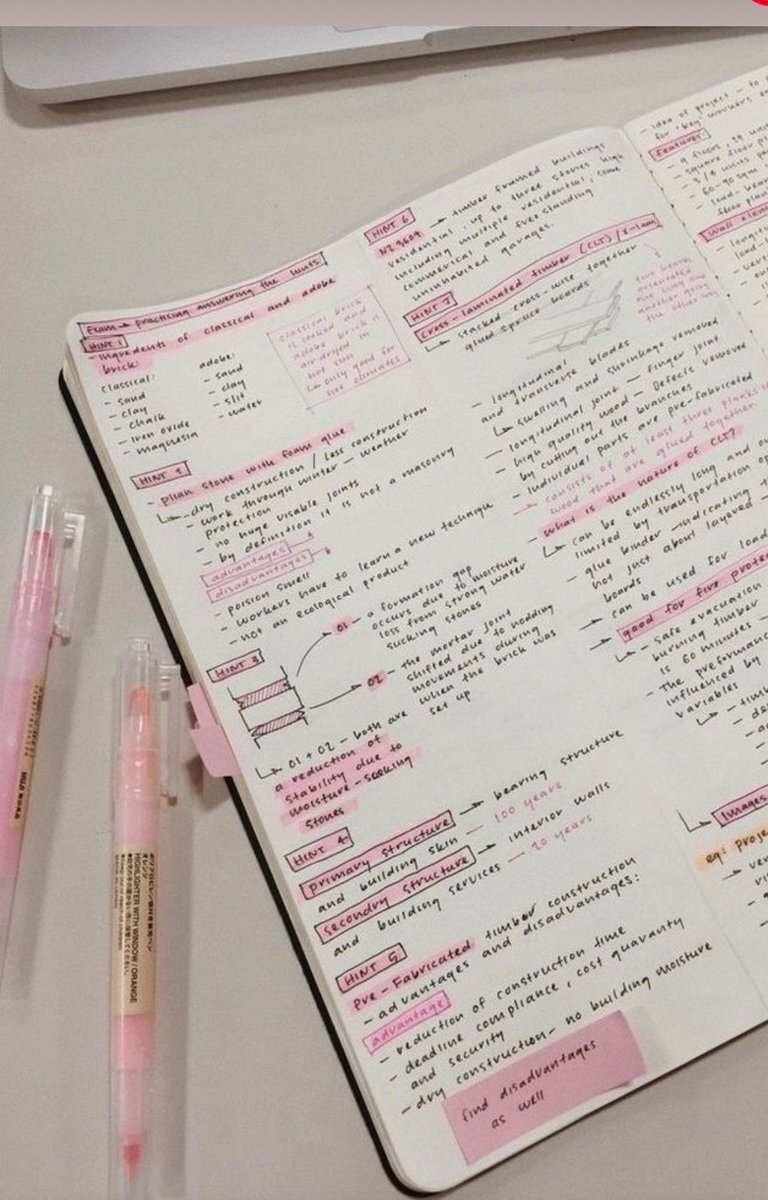 Exam → practising answering the hints:
HINT 1
- ingredients of classical and adobe
brick:
classical:
- sand
- clay
- chalk
- iron oxide
- magnesia
adobe:
- sand
- clay
- slit
- water
classical brick
is soaked and
adobe brick is
air dryed in
hot sun
↳ only good for
hot climates
HINT 2
- plan stone with foam glue
↳ - dry construction / less construction
- work through winter - weather
protection
- no huge visable joints
- by definition it is not a masonry
advantages
disadvantages
- poision smell
- workers have to learn a new technique
- not an ecological product
HINT 3
01 - a formation gap
occurs due to moisture
loss from strong water
sucking stones
02 - the mortar joint
shifted due to nodding
movements during
when the brick was
set up
↳ 01 + 02 - both are
a reduction of
stability due to
moisture-seeking
stones
HINT 4
primary structure → bearing structure
and building skin — 100 years
secondry structure → interior walls
and building services — 20 years
HINT 5
Pre-Fabricated timber construction
- advantages and disadvantages:
advantage
- reduction of construction time
- deadline compliance, cost guaranty
and security
- dry construction - no building moisture
find disadvantages
as well
HINT 6
NZ 3604 → timber framed buildings
residential, up to three stories high
including multiple residential, some
commercial and freestanding
uninhabited garages.
HINT 7
cross-laminated timber (CLT) / x-lam
↳ stacked cross-wise together
glued spruce boards
two boards
orientated
one way and
another going
the other way
- longitudinal
and transverse blades
↳ swelling and shrinkage removed
- longitudinal joint - finger joint
- high quality wood - Defects removed
by cutting out the branches
- Individual parts are pre-fabricated
→ consists of at least three planks
wood that are glued together
- what is the nature of CLT?
↳ can be endlessly long and
limited by transportation
- glue binder - indicating
not just about layered
boards
→ can be used for load
→ good for fire
↳ - safe evacuation
burning timber
is 60 minutes
- The preformance
influenced by
variables
↳ - timb
- idea of project - to
for 'key' workers
Features
- 9 floors
- square floor
- 3/4 units
- 60-90 sqm
- load-bear
floor plan
wall
- longit
- load-
Images
eg: proje